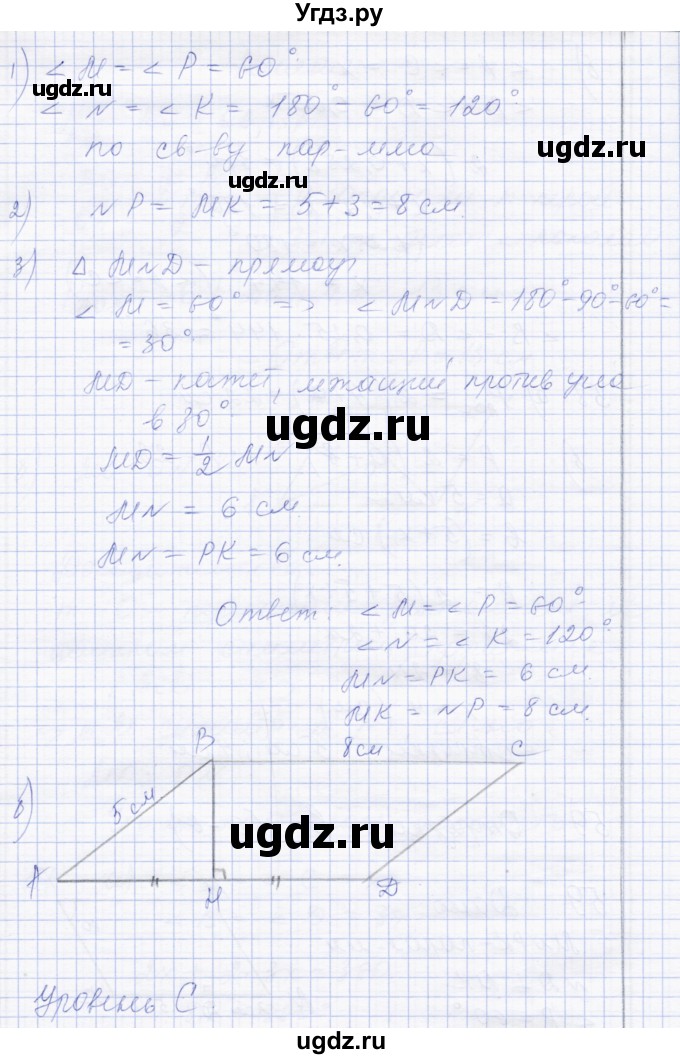 Угдз.ру
1) ∠M = ∠P = 60°
ugdz.ru
∠N = ∠K = 180° - 60° = 120°
по св-ву пар-мма
ugdz.ru
ugdz.ru
2) NP = MK = 5+3 = 8 см.
3) Δ MND - прямоуг
∠M = 60° => ∠MND = 180°-90°-60°=
= 30°
MD - катет, лежащий против угла
в 30°
ugdz.ru
MD = 1/2 MN
MN = 6 см.
MN = PK = 6 см.
Ответ: ∠M = ∠P = 60°
∠N = ∠K = 120°
MN = PK = 6 см.
MK = NP = 8 см.
B 8 см C
б) 5 см
ugdz.ru
A H D
Уровень С.
ugdz.ru
ugdz.ru